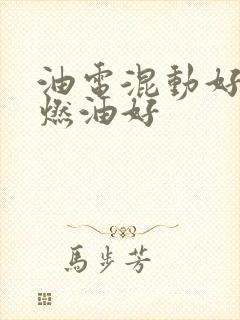 油电混動好
燃油好
馬步芳